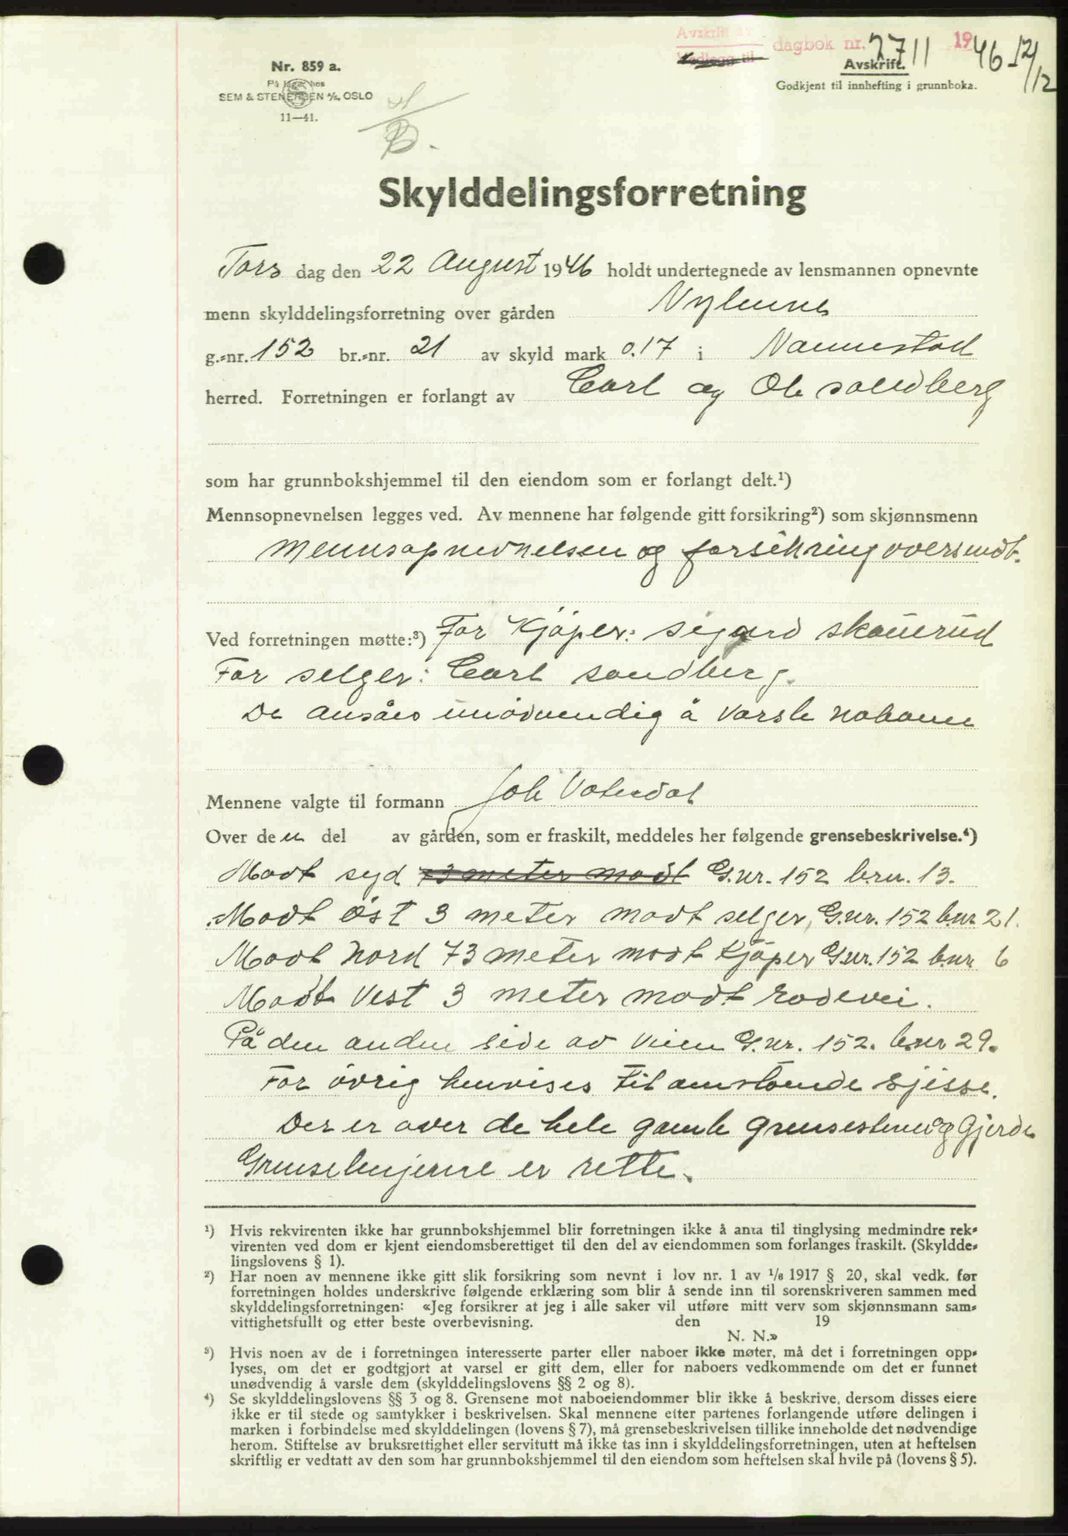 Avskrift av dagbok nr. 2711 1946 12/12
Vedlegg til
Avskrift.
Godkjent til innhefting i grunnboka.
Nr. 859 a.
På lager hos
SEM & STENERSEN A/S, OSLO
11—41.
B.
Skylddelingsforretning
Tors dag den 22 August 1946 holdt undertegnede av lensmannen opnevnte
menn skylddelingsforretning over gården
g.-nr. 152 br.-nr. 21 av skyld mark 0.17 i Nannestad
herred. Forretningen er forlangt av Carl og Ole Sandberg
som har grunnbokshjemmel til den eiendom som er forlangt delt.¹)
Mennsopnevnelsen legges ved. Av mennene har følgende gitt forsikring²) som skjønnsmenn
Mennsopnevnelsen og forsikring oversendt.
Ved forretningen møtte:³) For Kjöper: Sigurd Skauerud
For selger: Carl Sandberg.
De ansåes unödvendig å varsle naboene
Mennene valgte til formann Joh
Over den del av gården, som er fraskilt, meddeles her følgende grensebeskrivelse.⁴)
Modt syd 73 meter modt G.nr. 152 br.nr. 13.
Modt öst 3 meter modt selger, G.nr. 152 b.nr 21.
Modt Nord 73 meter modt Kjöper G.nr. 152 b.nr 6
Modt Vest 3 meter modt rodevei.
På den anden side av Veien G.nr. 152. b.nr 29.
For övrig henvises til omstående skjisse.
Der er over de hele gamle grensestener og gjerde
Grenselinjerne er rette.
¹) Hvis rekvirenten ikke har grunnbokshjemmel blir forretningen ikke å anta til tinglysing medmindre rek-
virenten ved dom er kjent eiendomsberettiget til den del av eiendommen som forlanges fraskilt. (Skyldde-
lingslovens § 1).
²) Har noen av mennene ikke gitt slik forsikring som nevnt i lov nr. 1 av 1/6 1917 § 20, skal vedk. før
forretningen holdes underskrive følgende erklæring som blir å sende inn til sorenskriveren sammen med
skylddelingsforretningen: «Jeg forsikrer at jeg i alle saker vil utføre mitt verv som skjønnsmann sam-
vittighetsfullt og etter beste overbevisning. den 19
N. N.»
³) Hvis noen av de i forretningen interesserte parter eller naboer ikke møter, må det i forretningen opp-
lyses, om det er godtgjort at varsel er gitt dem, eller for naboers vedkommende om det er funnet
unødvendig å varsle dem (skylddelingslovens §§ 2 og 8).
⁴) Se skylddelingslovens §§ 3 og 8. Grensene mot naboeiendommer blir ikke å beskrive, dersom disses eiere
ikke er til stede og samtykker i beskrivelsen. Skal mennene etter partenes forlangende utføre delingen i
marken i forbindelse med skylddelingen (lovens § 7), må grensebeskrivelsen tillike inneholde det nødvendige
herom. Stiftelse av bruksrettighet eller servitutt må ikke tas inn i skylddelingsforretningen, uten at heftelsen
skriftlig er vedtatt av den som har grunnbokshjemmel til den eiendom som heftelsen skal hvile på (lovens § 5).